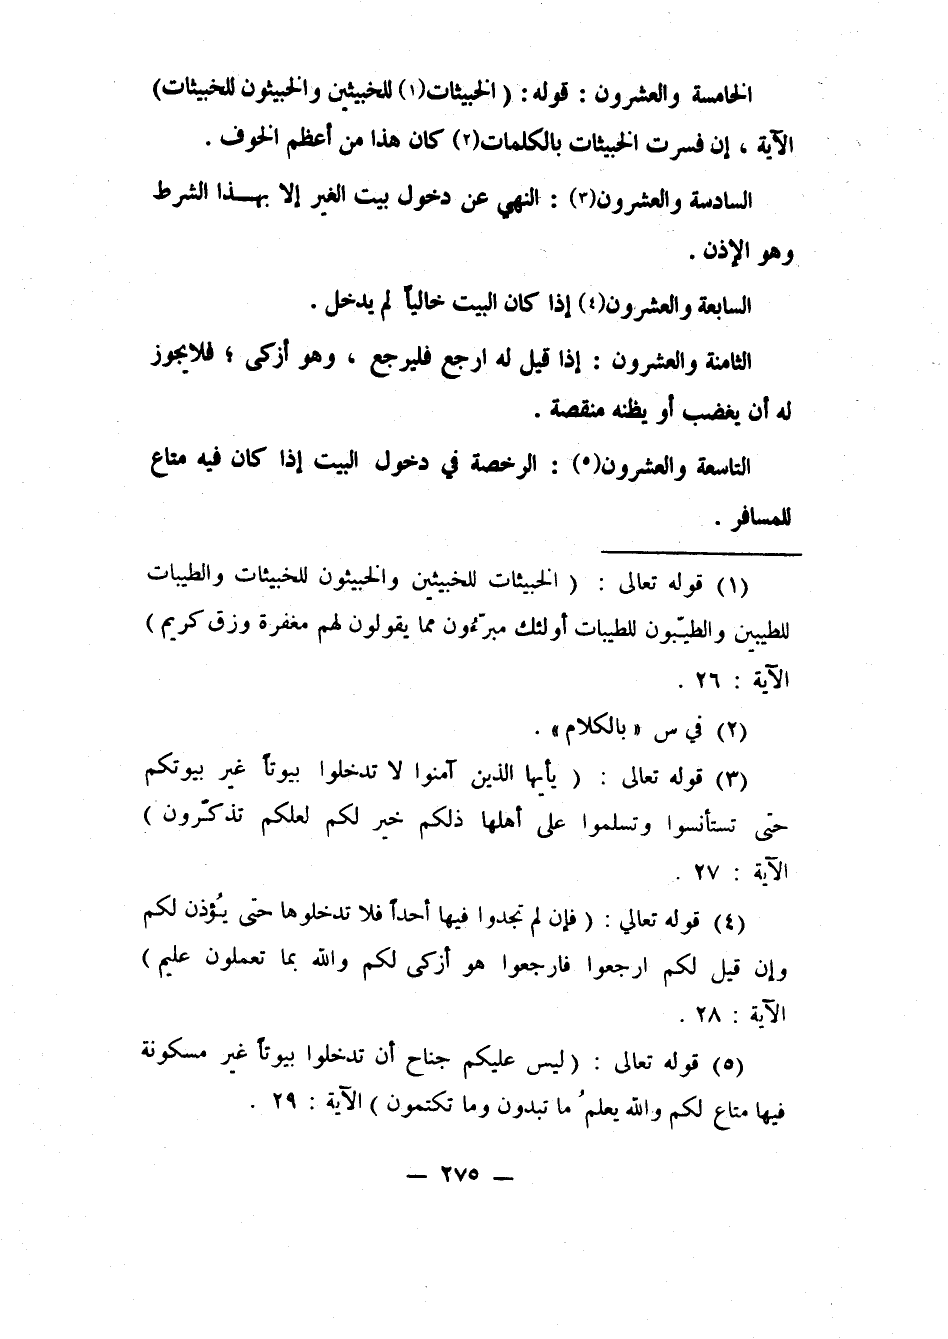 الخامسة والعشرون : قوله: ( الخبيثات(١) للخبيثين والخبيثون للخبيثات)
الآية ، إن فسرت الخبيثات بالكلمات(٢) كان هذا من أعظم الخوف .
السادسة والعشرون(٣) : النهي عن دخول بيت الغير إلا بهــذا الشرط
وهو الإذن .
السابعة والعشرون(٤) إذا كان البيت خالياً لم يدخل .
الثامنة والعشرون : إذا قيل له ارجع فليرجع ، وهو أزكى ؛ فلايجوز
له أن يغضب أو يظنه منقصة .
التاسعة والعشرون(٥) : الرخصة في دخول البيت إذا كان فيه متاع
للمسافر .
(١) قوله تعالى : ( الخبيثات للخبيثين والخبيثون للخبيثات والطيبات
للطيبين والطيّبون للطيبات أولئك مبرّءُون مما يقولون لهم مغفرة وزق كريم )
الآية : ٢٦ .
(٢) في س « بالكلام » .
(٣) قوله تعالى : ( يأيها الذين آمنوا لا تدخلوا بيوتاً غير بيوتكم
حتّى تستأنسوا وتسلموا على أهلها ذلكم خير لكم لعلكم تذكّرون )
الآية : ٢٧ .
(٤) قوله تعالي : ( فإن لم تجدوا فيها أحداً فلا تدخلوها حتّى يُؤذن لكم
وإن قيل لكم ارجعوا فارجعوا هو أزكى لكم والله بما تعملون عليم )
الآية : ٢٨ .
(٥) قوله تعالى : ( ليس عليكم جناح أن تدخلوا بيوتاً غير مسكونة
فيها متاع لكم والله يعلمُ ما تبدون وما تكتمون ) الآية : ٢٩ .
— ٢٧٥ —